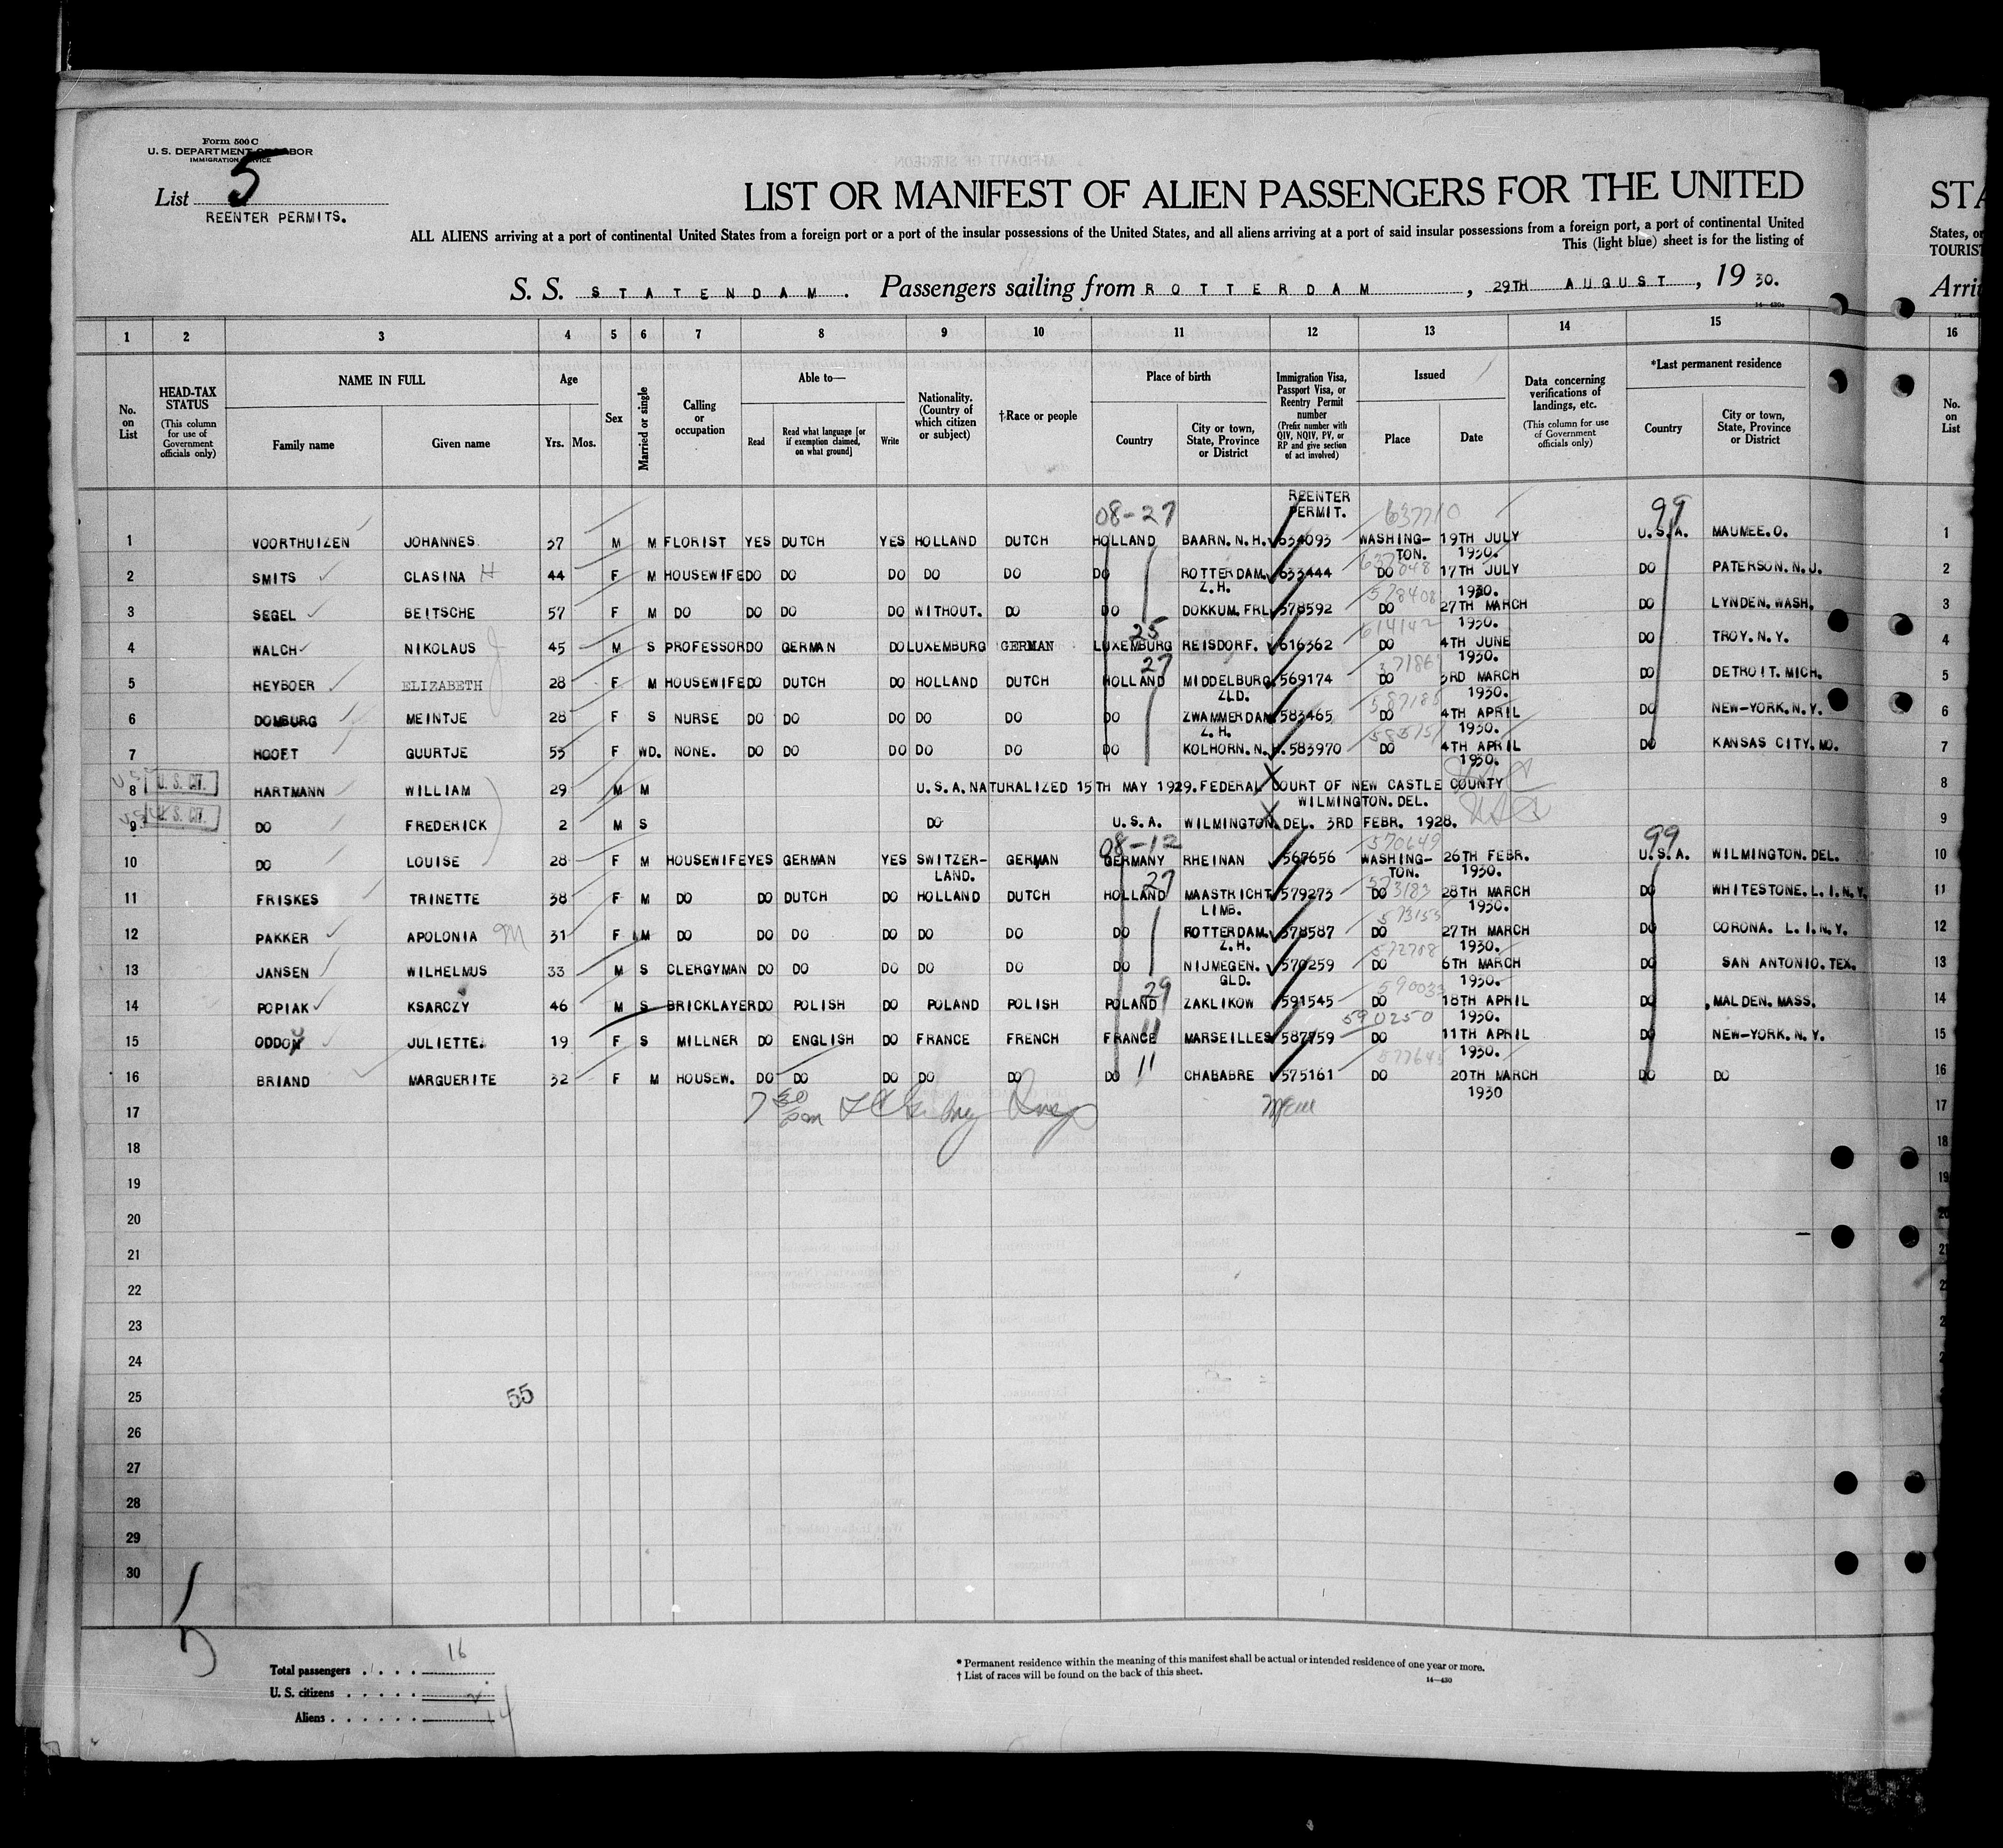 Form 500 C
U. S. DEPARTMENT OF LABOR
IMMIGRATION SERVICE
List 5
REENTER PERMITS.
LIST OR MANIFEST OF ALIEN PASSENGERS FOR THE UNITED
STA
ALL ALIENS arriving at a port of continental United States from a foreign port or a port of the insular possessions of the United States, and all aliens arriving at a port of said insular possessions from a foreign port, a port of continental United
States, or
This (light blue) sheet is for the listing of
TOURIST
S. S. STATENDAM. Passengers sailing from ROTTERDAM, 29TH AUGUST, 19 30.
Arri
1 2 3 4 5 6 7 8 9 10 11 12 13 14 15 16
No. on List
HEAD-TAX STATUS (This column for use of Government officials only)
NAME IN FULL Family name Given name
Age Yrs. Mos.
Sex
Married or single
Calling or occupation
Able to— Read Read what language [or if exemption claimed, on what ground] Write
Nationality. (Country of which citizen or subject)
†Race or people
Place of birth Country City or town, State, Province or District
Immigration Visa, Passport Visa, or Reentry Permit number (Prefix number with QIV, NQIV, PV, or RP and give section of act involved)
Issued Place Date
Data concerning verifications of landings, etc. (This column for use of Government officials only)
*Last permanent residence Country City or town, State, Province or District
No. on List
08-27 REENTER PERMIT. 637710 99
1 VOORTHUIZEN JOHANNES. 37 M M FLORIST YES DUTCH YES HOLLAND DUTCH HOLLAND BAARN. N. H. 634093 WASHING-TON. 19TH JULY 1930. U.S.A. MAUMEE. O. 1
2 SMITS CLASINA H 44 F M HOUSEWIFE DO DO DO DO DO DO ROTTERDAM. Z. H. 633444 DO 17TH JULY 1930. DO PATERSON. N. J. 2
578408
3 SEGEL BEITSCHE 57 F M DO DO DO DO WITHOUT. DO DO DOKKUM. FRL 578592 DO 27TH MARCH 1930. DO LYNDEN. WASH. 3
25 614142
4 WALCH NIKOLAUS J 45 M S PROFESSOR DO GERMAN DO LUXEMBURG GERMAN LUXEMBURG REISDORF. 616362 DO 4TH JUNE 1930. DO TROY. N. Y. 4
27
5 HEYBOER ELIZABETH 28 F M HOUSEWIFE DO DUTCH DO HOLLAND DUTCH HOLLAND MIDDELBURG ZLD. 569174 DO 3RD MARCH 1930. DO DETROIT. MICH. 5
587185
6 DOMBURG MEINTJE 28 F S NURSE DO DO DO DO DO DO ZWAMMERDAM Z. H. 583465 DO 4TH APRIL 1930. DO NEW-YORK. N. Y. 6
7 HOOFT GUURTJE 55 F WD. NONE. DO DO DO DO DO DO KOLHORN. N. H. 583970 DO 4TH APRIL 1930. DO KANSAS CITY. MO. 7
8 U. S. CIT. HARTMANN WILLIAM 29 M M U.S.A. NATURALIZED 15TH MAY 1929. FEDERAL COURT OF NEW CASTLE COUNTY WILMINGTON. DEL. 8
9 U. S. CIT. DO FREDERICK 2 M S DO U.S.A. WILMINGTON. DEL. 3RD FEBR. 1928. 9
08-12 570649 99
10 DO LOUISE 28 F M HOUSEWIFE YES GERMAN YES SWITZER-LAND. GERMAN GERMANY RHEINAN 567656 WASHING-TON. 26TH FEBR. 1930. U.S.A. WILMINGTON. DEL. 10
27
11 FRISKES TRINETTE 38 F M DO DO DUTCH DO HOLLAND DUTCH HOLLAND MAASTRICHT LIMB. 579273 DO 28TH MARCH 1930. DO WHITESTONE. L. I. N. Y. 11
573153
12 PAKKER APOLONIA M 31 F M DO DO DO DO DO DO DO ROTTERDAM. Z. H. 578587 DO 27TH MARCH 1930. DO CORONA. L. I. N. Y. 12
572708
13 JANSEN WILHELMUS 33 M S CLERGYMAN DO DO DO DO DO DO NIJMEGEN. GLD. 570259 DO 6TH MARCH 1930. DO SAN ANTONIO. TEX. 13
29 590033
14 POPIAK KSARCZY 46 M S BRICKLAYER DO POLISH DO POLAND POLISH POLAND ZAKLIKOW 591545 DO 18TH APRIL 1930. DO MALDEN. MASS. 14
11 590250
15 ODDOU JULIETTE. 19 F S MILLNER DO ENGLISH DO FRANCE FRENCH FRANCE MARSEILLES 587759 DO 11TH APRIL 1930. DO NEW-YORK. N. Y. 15
11
16 BRIAND MARGUERITE 32 F M HOUSEW. DO DO DO DO DO DO CHABABRE 575161 DO 20TH MARCH 1930 DO DO 16
17 7 30 pm 17
18 18
19 19
20 20
21 21
22
23
24
25 55
26
27
28
29
30
Total passengers 16
U. S. citizens 2
Aliens 14
* Permanent residence within the meaning of this manifest shall be actual or intended residence of one year or more.
† List of races will be found on the back of this sheet.
14—430